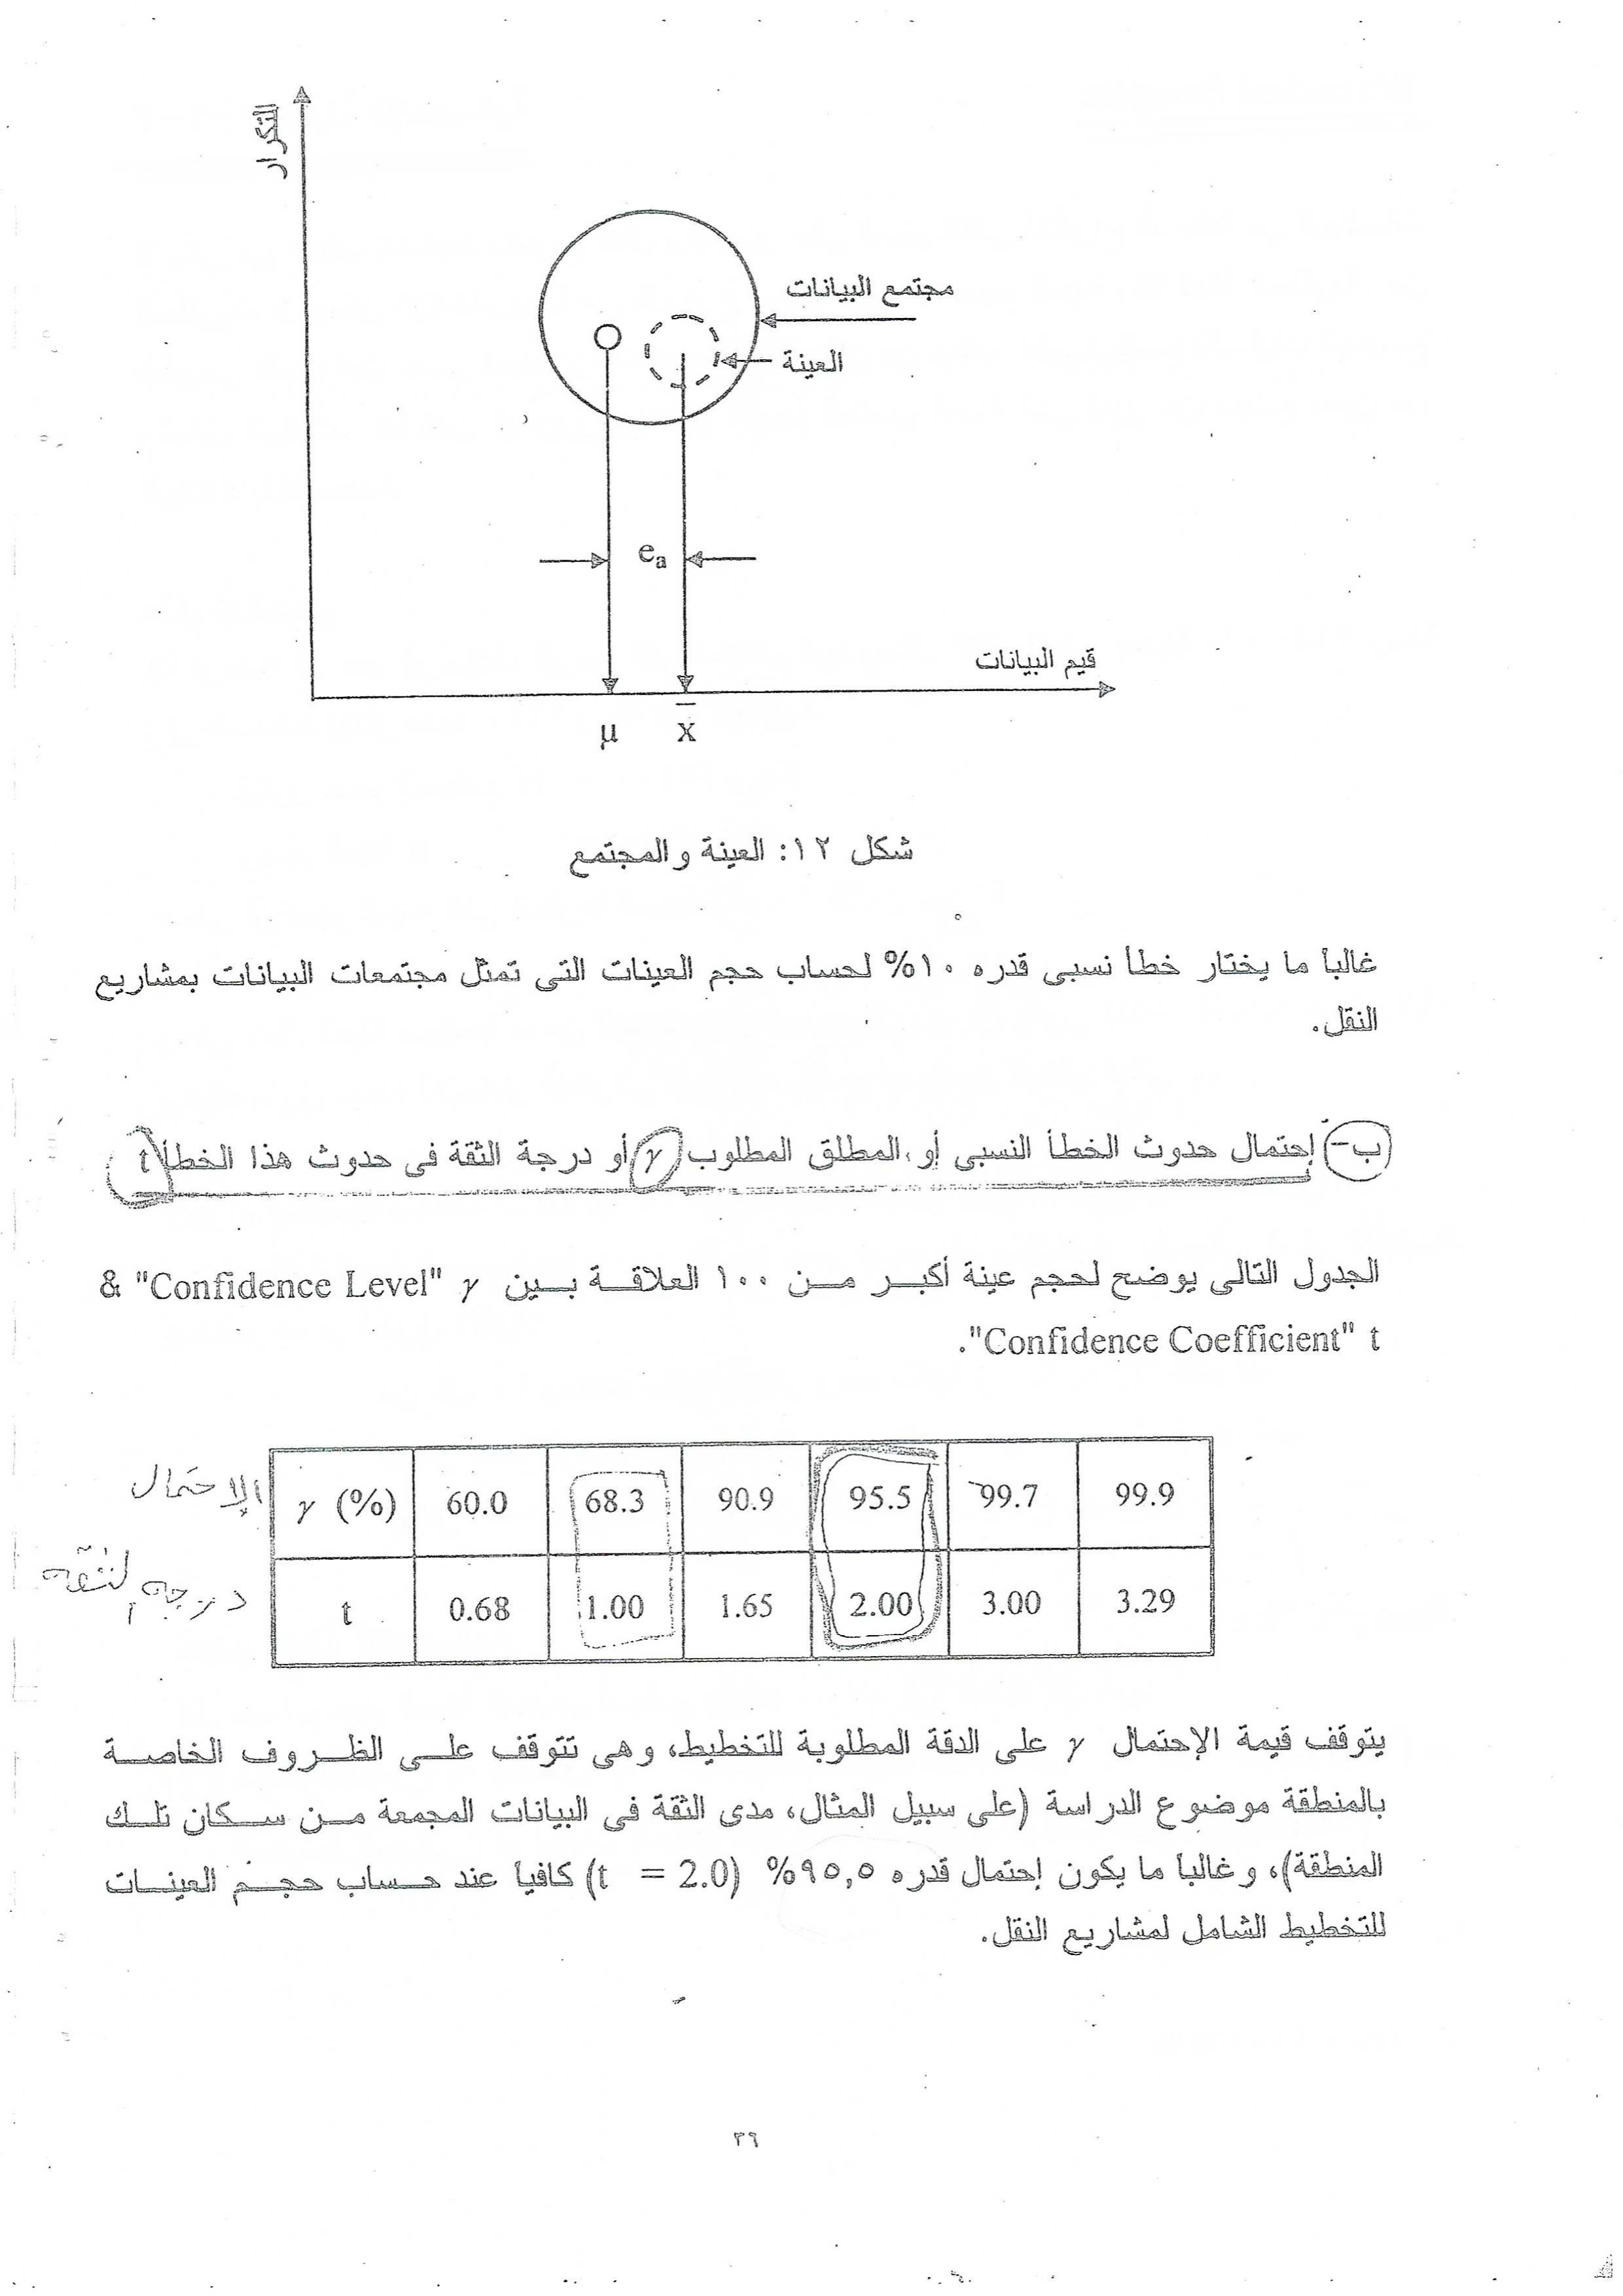 التكرار
مجتمع البيانات
العينة
eₐ
قيم البيانات
μ X̄
شكل ١٢: العينة والمجتمع
غالبا ما يختار خطأ نسبى قدره ١٠% لحساب حجم العينات التى تمثل مجتمعات البيانات بمشاريع
النقل.
ب- إحتمال حدوث الخطأ النسبى أو المطلق المطلوب γ أو درجة الثقة فى حدوث هذا الخطأ t :
الجدول التالى يوضح لحجم عينة أكبر من ١٠٠ العلاقة بين γ "Confidence Level" &
t "Confidence Coefficient".
الإحتمال γ (%) 60.0 68.3 90.9 95.5 99.7 99.9
درجة الثقة t 0.68 1.00 1.65 2.00 3.00 3.29
يتوقف قيمة الإحتمال γ على الدقة المطلوبة للتخطيط، وهى تتوقف على الظروف الخاصة
بالمنطقة موضوع الدراسة (على سبيل المثال، مدى الثقة فى البيانات المجمعة من سكان تلك
المنطقة)، وغالبا ما يكون إحتمال قدره ٩٥,٥% (t = 2.0) كافيا عند حساب حجم العينات
للتخطيط الشامل لمشاريع النقل.
٣٩